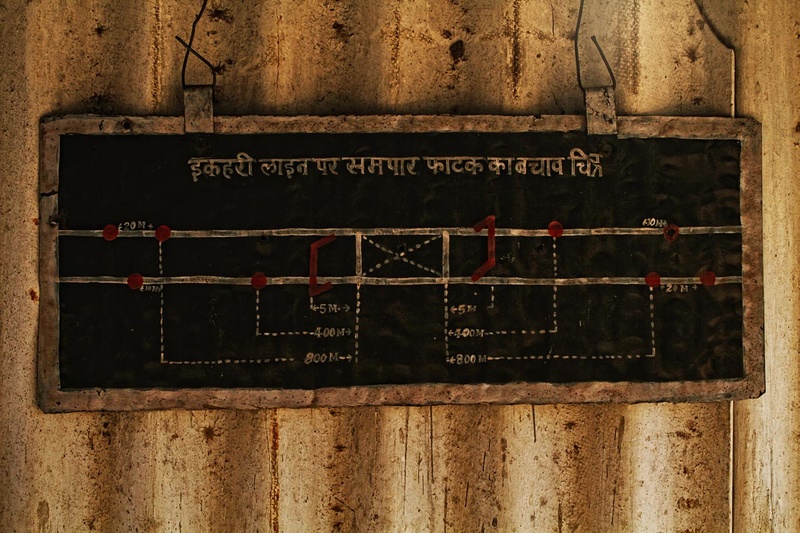 इकहरी लाइन पर समपार फाटक का बचाव चित्र
20M
5M 5M
400M 400M
800M 800M
20M